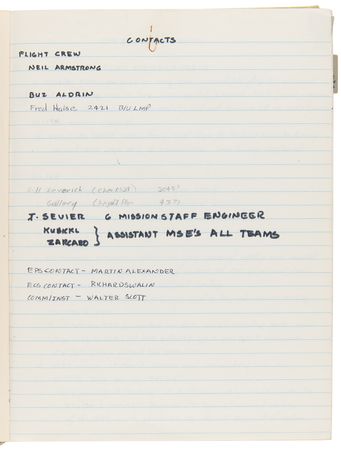 CONTACTS
FLIGHT CREW
NEIL ARMSTRONG
BUZ ALDRIN
Fred Haise 2421 B/U LMP
J. SEVIER G MISSION STAFF ENGINEER
KUBICKI
ZARCARO } ASSISTANT MSE'S ALL TEAMS
EPS CONTACT - MARTIN ALEXANDER
ECS CONTACT - RICHARD SWALIN
COMM/INST - WALTER SCOTT